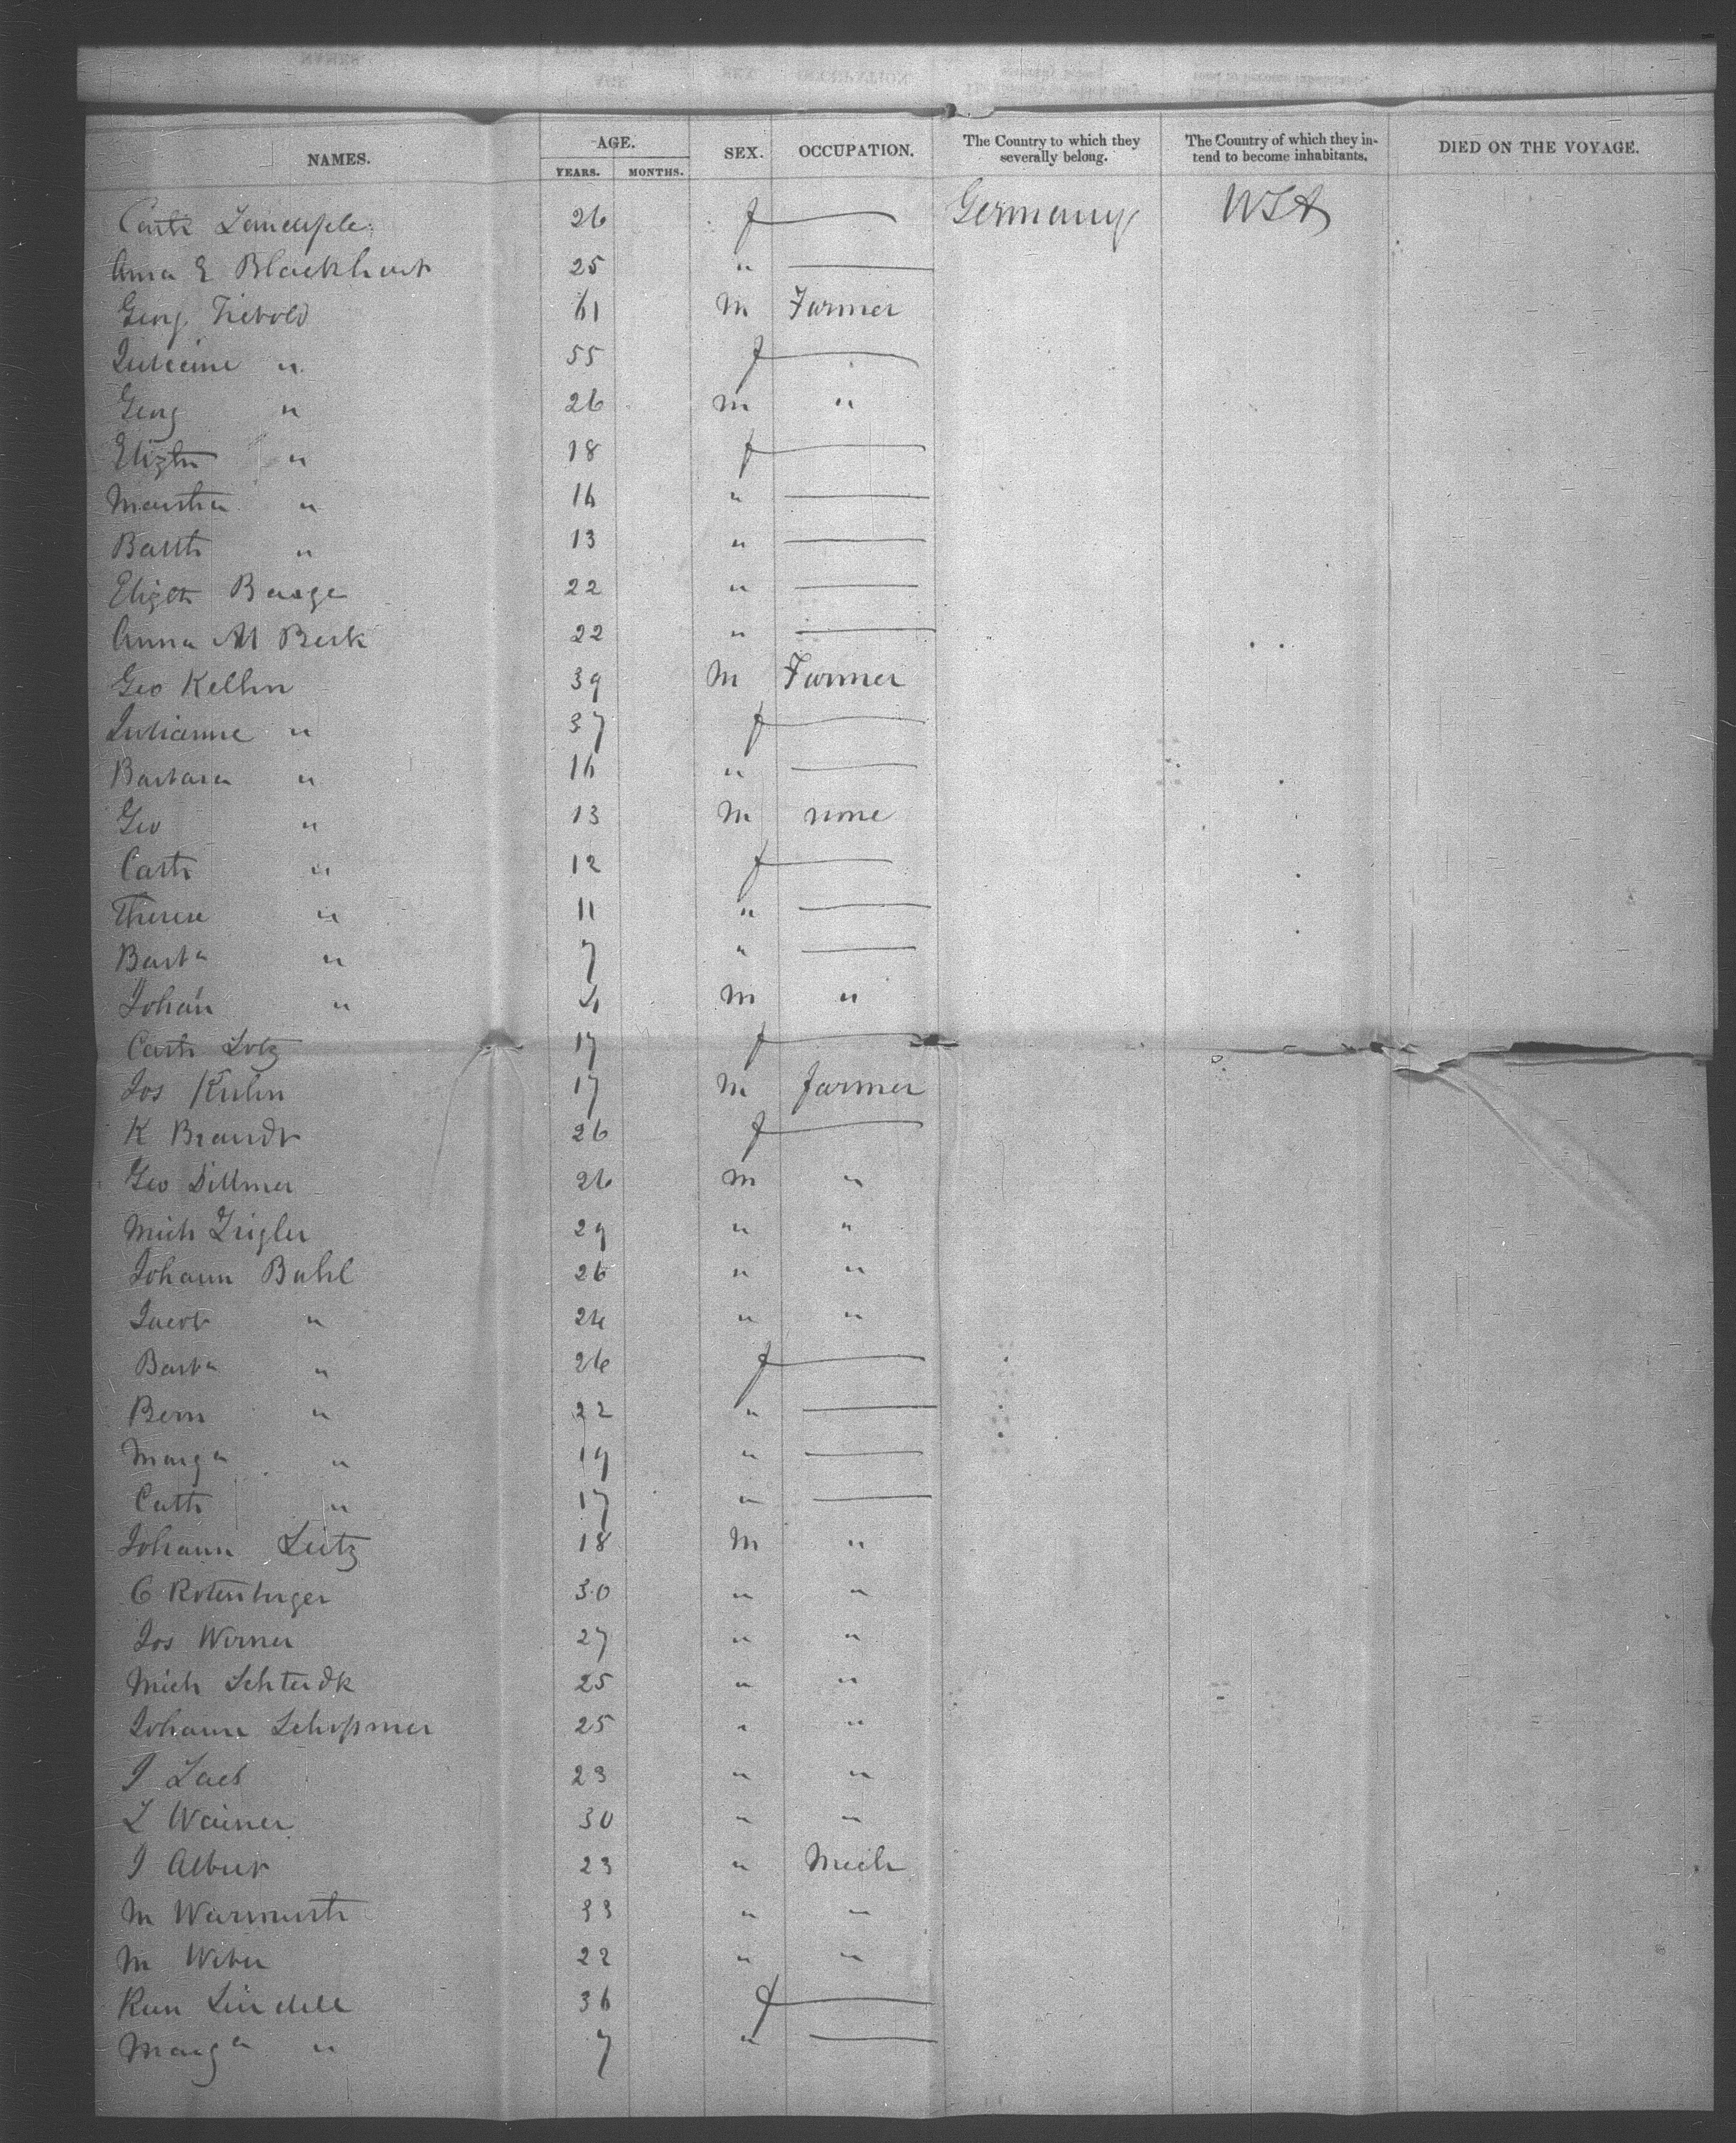 NAMES. AGE. SEX. OCCUPATION. The Country to which they severally belong. The Country of which they intend to become inhabitants. DIED ON THE VOYAGE.
YEARS. MONTHS.
Cath 26 f — Germany USA
Anna E Blackhart 25 " —
Georg Tiebold 61 M Farmer
" 55 f —
Georg " 26 M "
Elizth " 18 f —
Martha " 16 " —
Bath " 13 " —
Elizth 22 " —
Anna M Berk 22 " —
Geo Kellin 39 M Farmer
Julianne " 37 f —
Barbara " 16 " —
Geo " 13 M none
Cath " 12 f —
Therese " 11 " —
Barba " 7 " —
Johan " 4 M "
Cath Lotz 17 f —
Jos Kuhn 17 M farmer
K Brandt 26 f —
Geo Dittmer 26 M "
Mich Zeigler 29 " "
Johann Buhl 26 " "
Jacob " 24 " "
Barba " 26 f —
Bern " 22 " —
Marga " 19 " —
Cath " 17 " —
Johann Leitz 18 M "
C Rotenberger 30 " "
Jos Werner 27 " "
Mich 25 " "
Johann 25 " "
J 23 " "
L Wainer 30 " "
J Albert 23 " Mech
M Warmuth 33 " "
M Weber 22 " "
Kun 36 f —
Marga " 7 " —